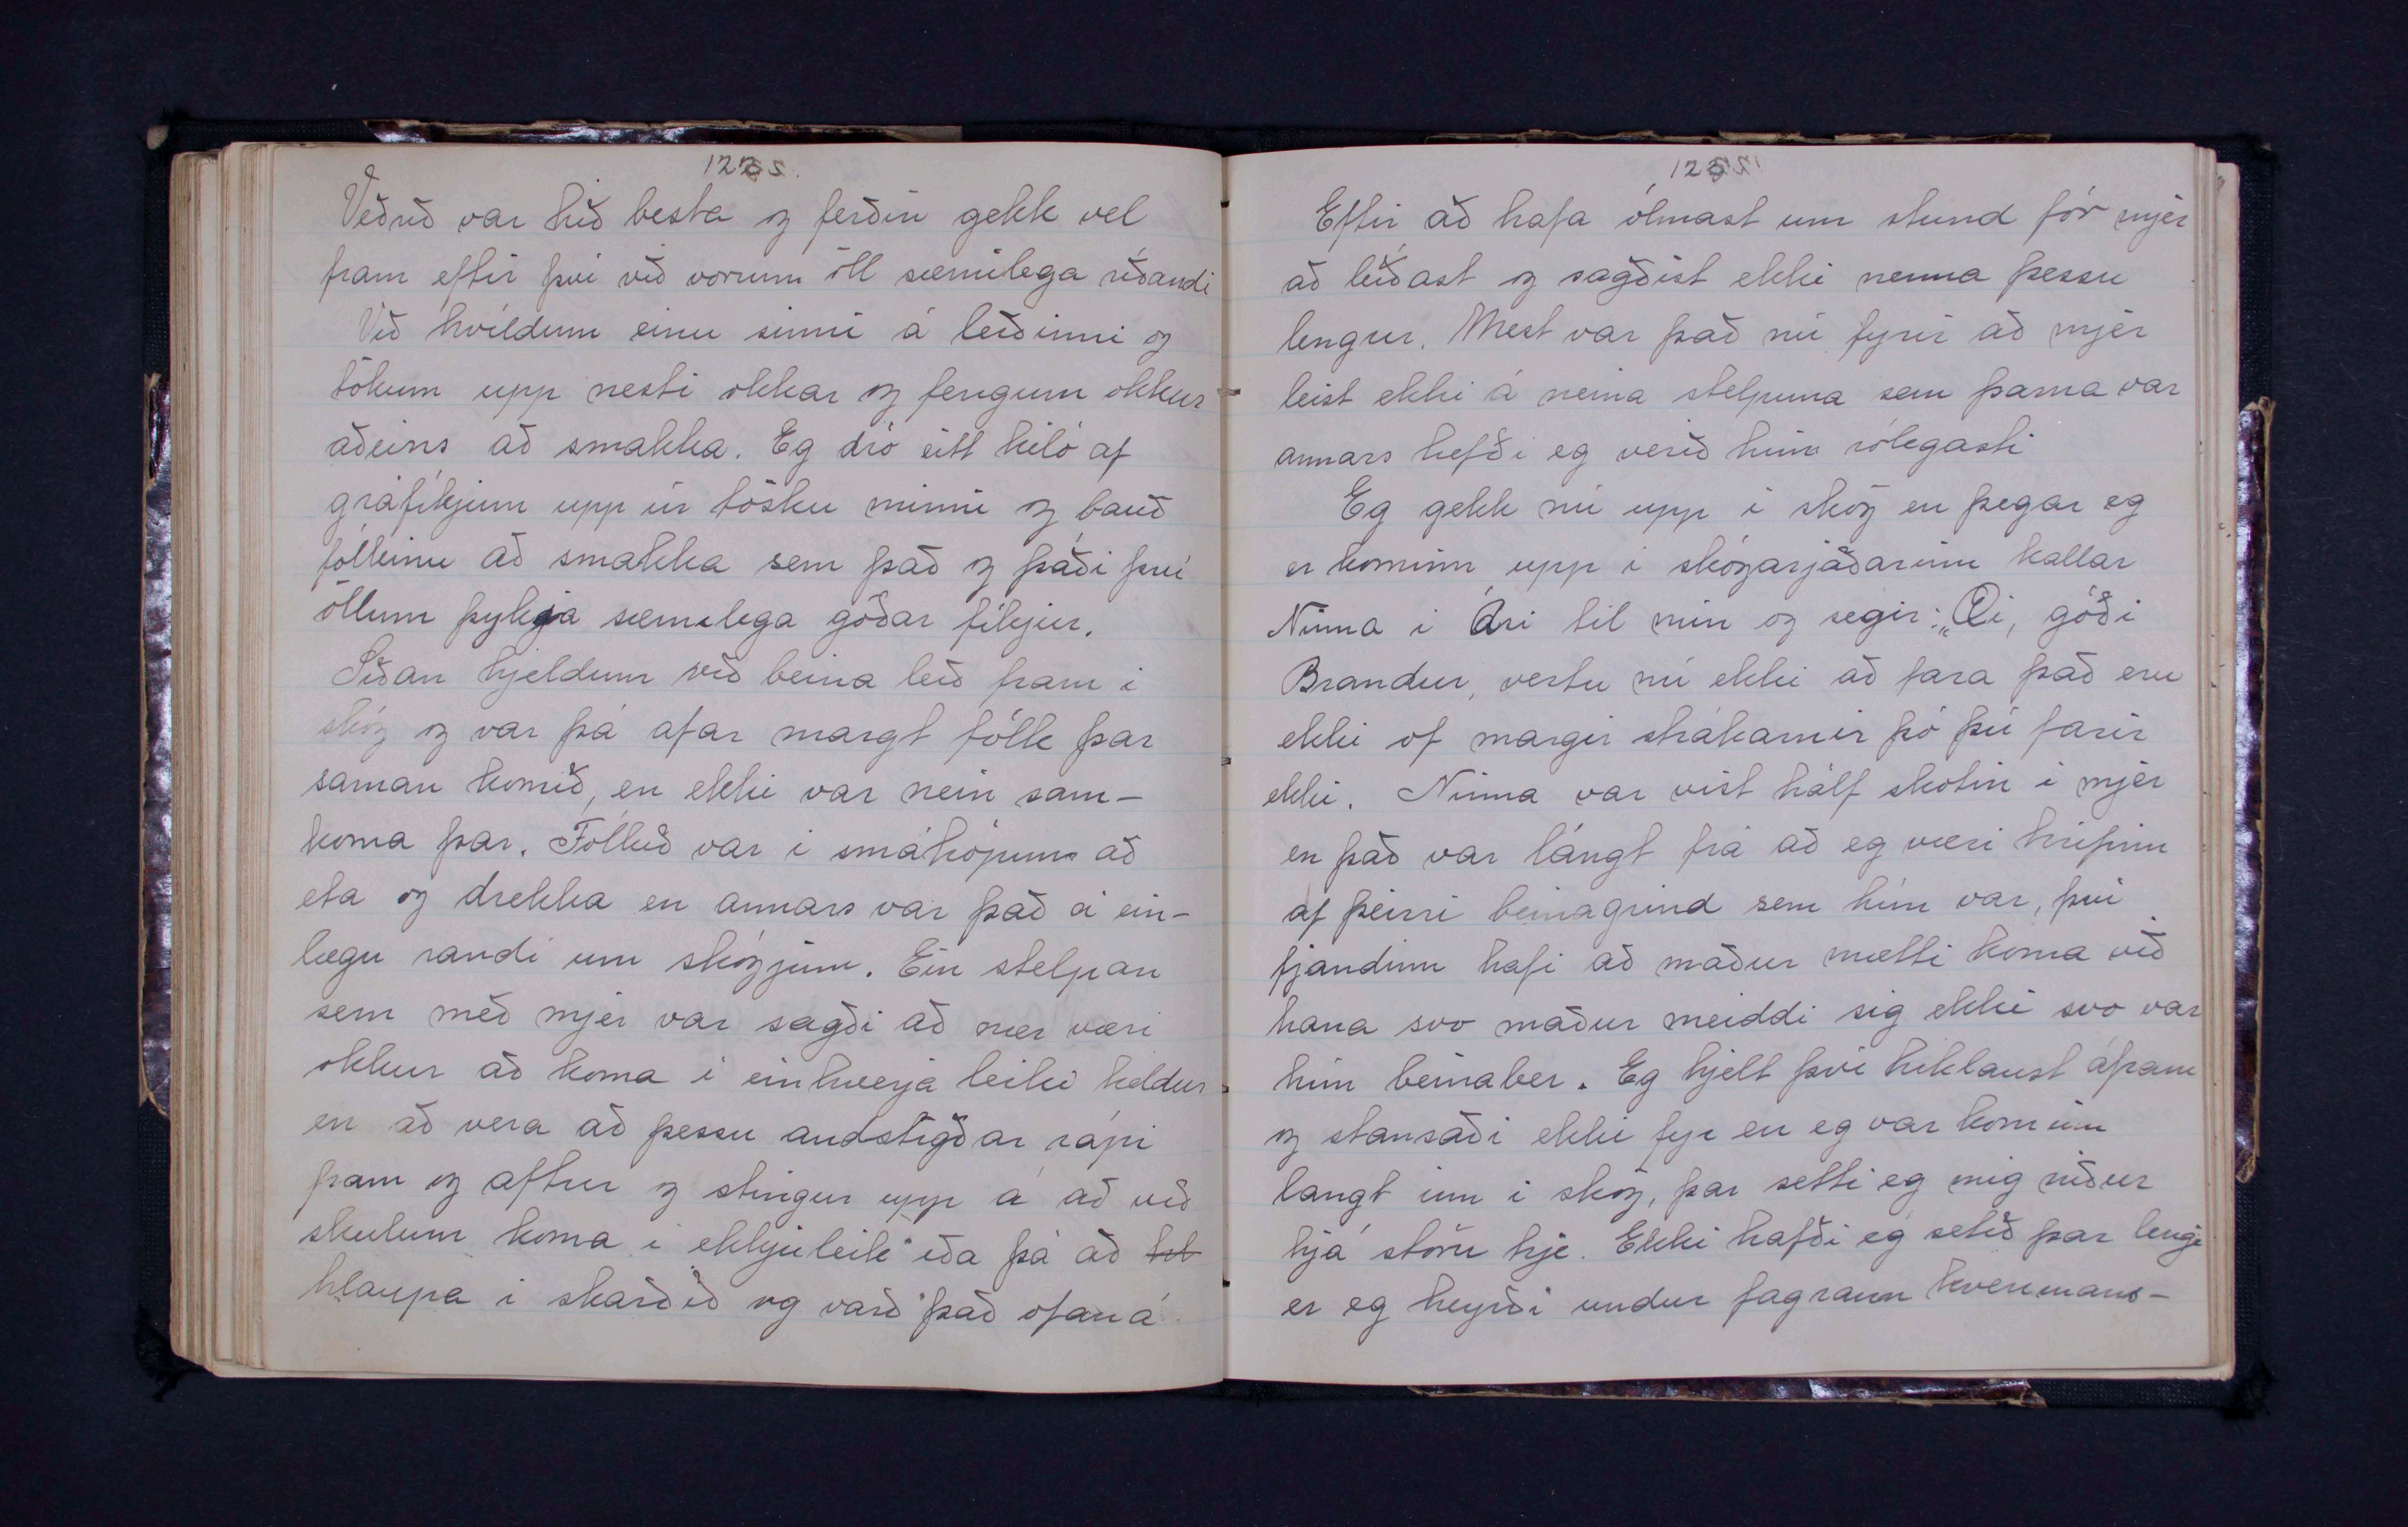 Veðrið var hið besta og ferðin gekk vel
fram eftir því við vorum öll sæmilega ríðandi
Við hvíldum einu sinni á leiðinni og
tókum upp nesti okkar og fengum okkur
aðeins að smakka. Eg dró eitt kíló af
gráfíkjum upp úr tösku minni og bauð
fólkinu að smakka sem það og þáði því
öllum þykja sæmilega góðar fíkjur.
Síðan hjeldum við beina leið fram í
skóg og var þá afar margt fólk þar
saman komið, en ekki var nein sam-
koma þar. Fólkið var í smáhópum að
eta og drekka en annars var það á ein-
lægu randi um skóginn. Ein stelpan
sem með mjer var sagði að nær væri
okkur að koma í einhverja leiki heldur
en að vera að þessu andstigðar rápi
fram og aftur og stingur upp á að við
skulum koma í ekkjuleik eða þá að
hlaupa í skarðið og varð það ofaná
Eftir að hafa ólmast um stund fór mjer
að leiðast og sagðist ekki nenna þessu
lengur. Mest var það nú fyrir að mjer
leist ekki á neina stelpuna sem þarna var
annars hefði eg verið hinn rólegasti
Eg gekk nú upp í skóg en þegar eg
er kominn upp í skógarjaðarinn kallar
Ninna í Ási til mín og segir: „Æi, góði
Brandur, vertu nú ekki að fara það eru
ekki of margir strákarnir þó þú farir
ekki. Ninna var víst hálf skotin í mjer
en það var lángt frá að eg væri hrifinn
af þeirri beinagrind sem hún var, því
fjandinn hafi að maður mætti koma við
hana svo maður meiddi sig ekki svo var
hún beinaber. Eg hjelt því hiklaust áfram
og stansaði ekki fyr en eg var kominn
langt inn í skóg, þar setti eg mig niður
hjá stóru trje. Ekki hafði eg setið þar lengi
er eg heyrði undur fagrann kvenmans-